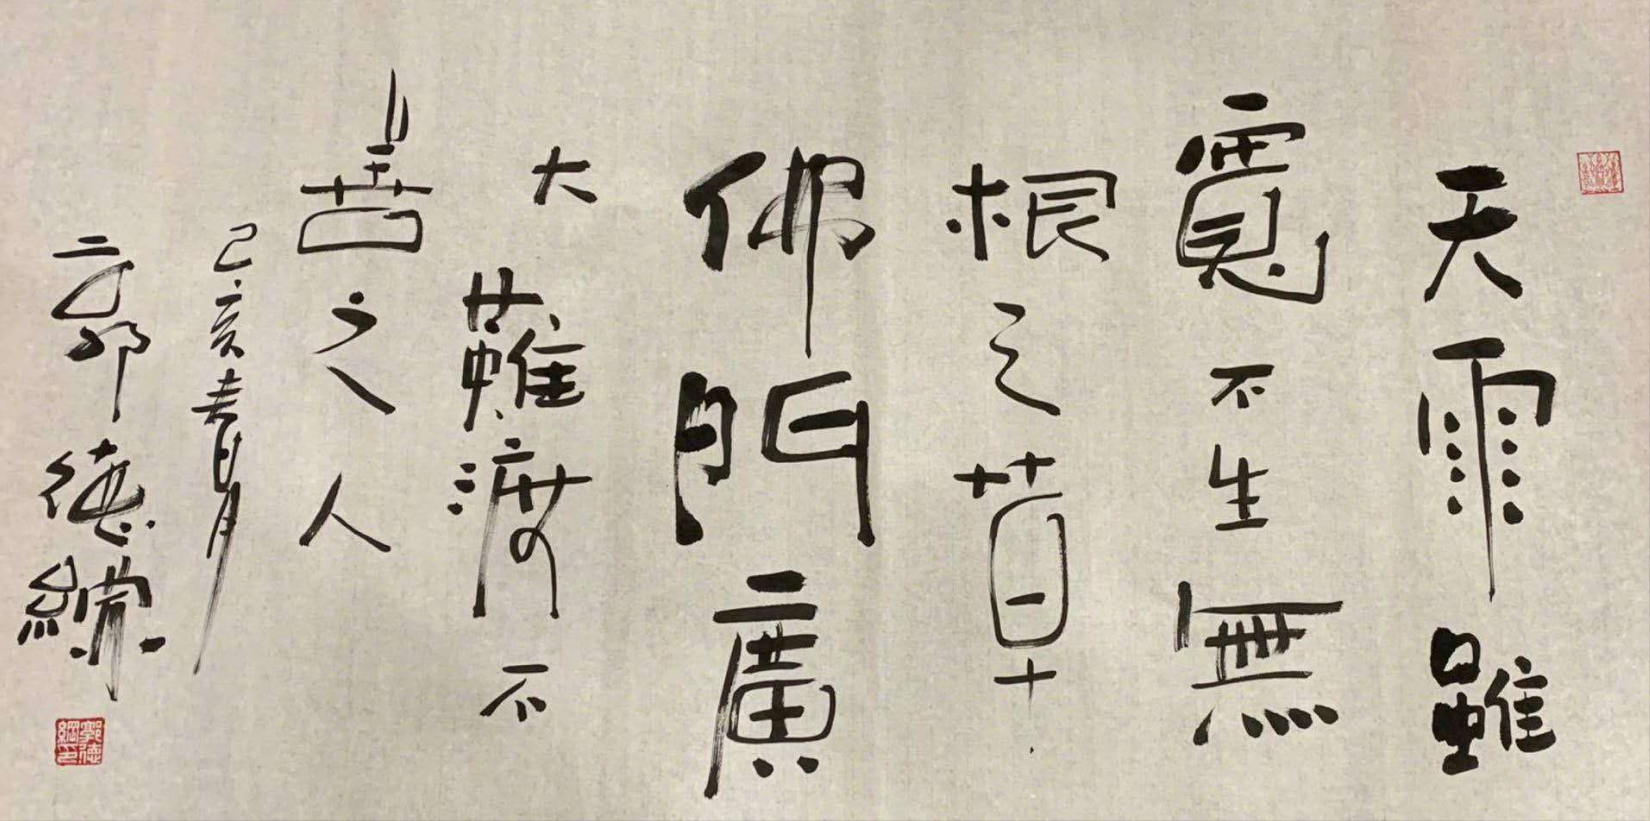 天雨雖
寬不生無
根之草
佛門廣
大難渡不
善之人
己亥春月
郭德綱
郭德綱印